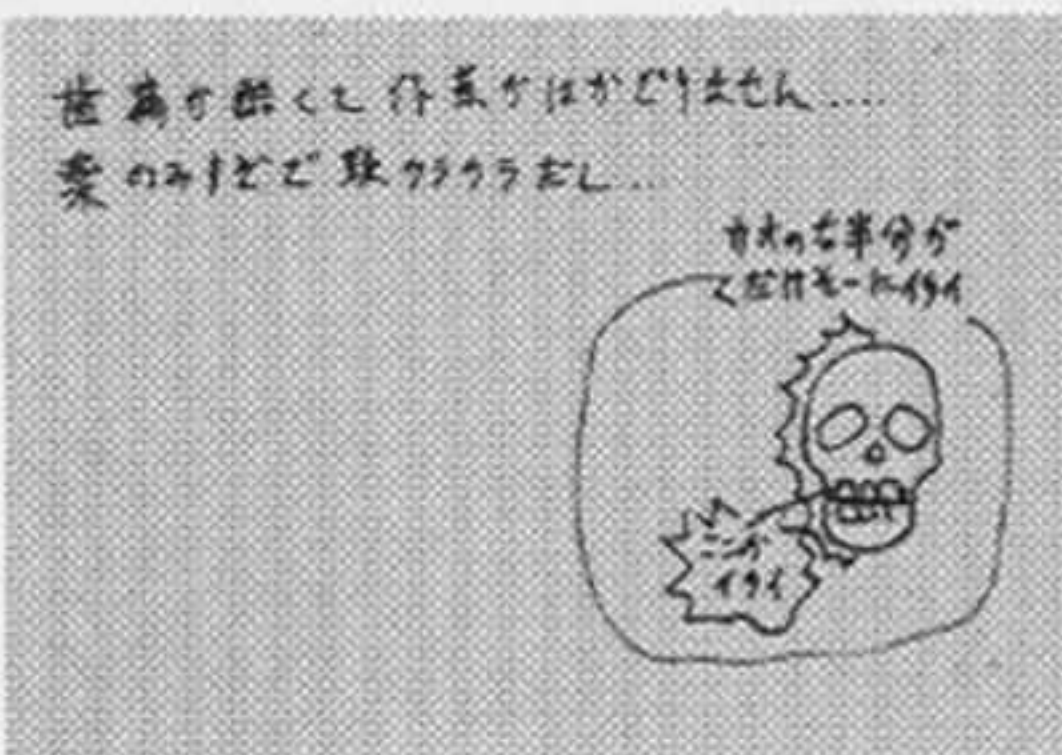 歯痛が酷くて作業がはかどりません....
薬のみすぎで頭クラクラだし...
カオの右半分が
くだけそーにイタイ
ココが
イタイ